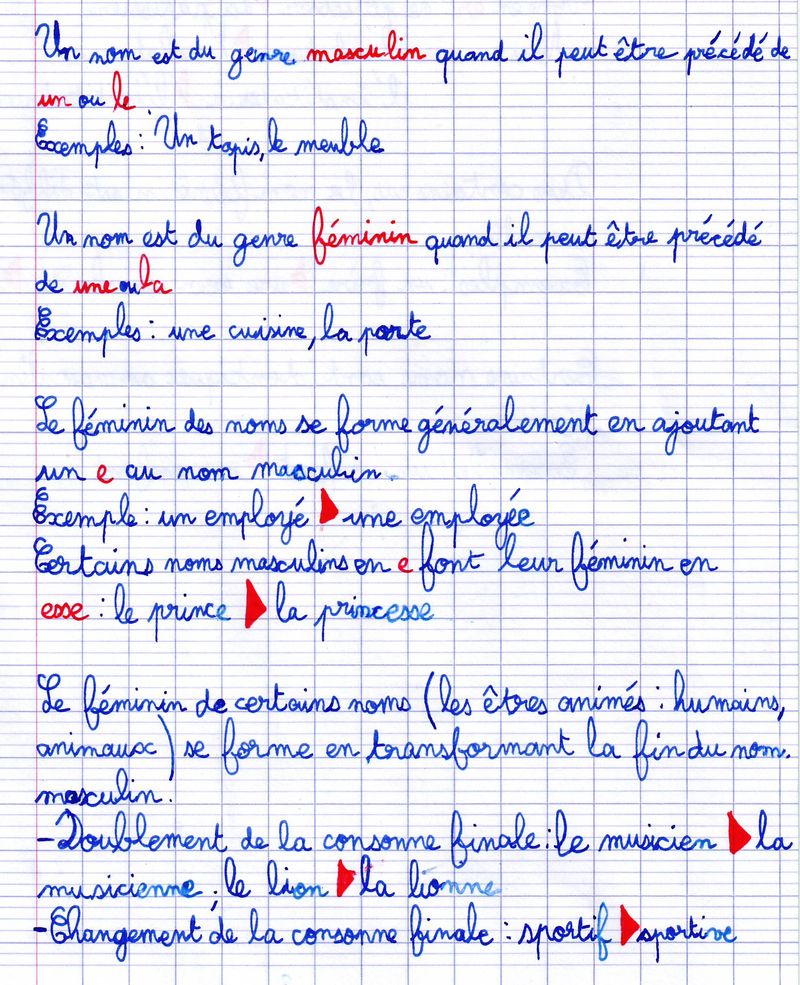 Un nom est du genre masculin quand il peut être précédé de
un ou le
Exemples : Un tapis, le meuble
Un nom est du genre féminin quand il peut être précédé
de une ou la
Exemples : une cuisine, la porte
Le féminin des noms se forme généralement en ajoutant
un e au nom masculin.
Exemple : un employé ▶ une employée
Certains noms masculins en e font leur féminin en
esse : le prince ▶ la princesse
Le féminin de certains noms (les êtres animés : humains,
animaux) se forme en transformant la fin du nom.
masculin.
-Doublement de la consonne finale : le musicien ▶ la
musicienne ; le lion ▶ la lionne
-Changement de la consonne finale : sportif ▶ sportive